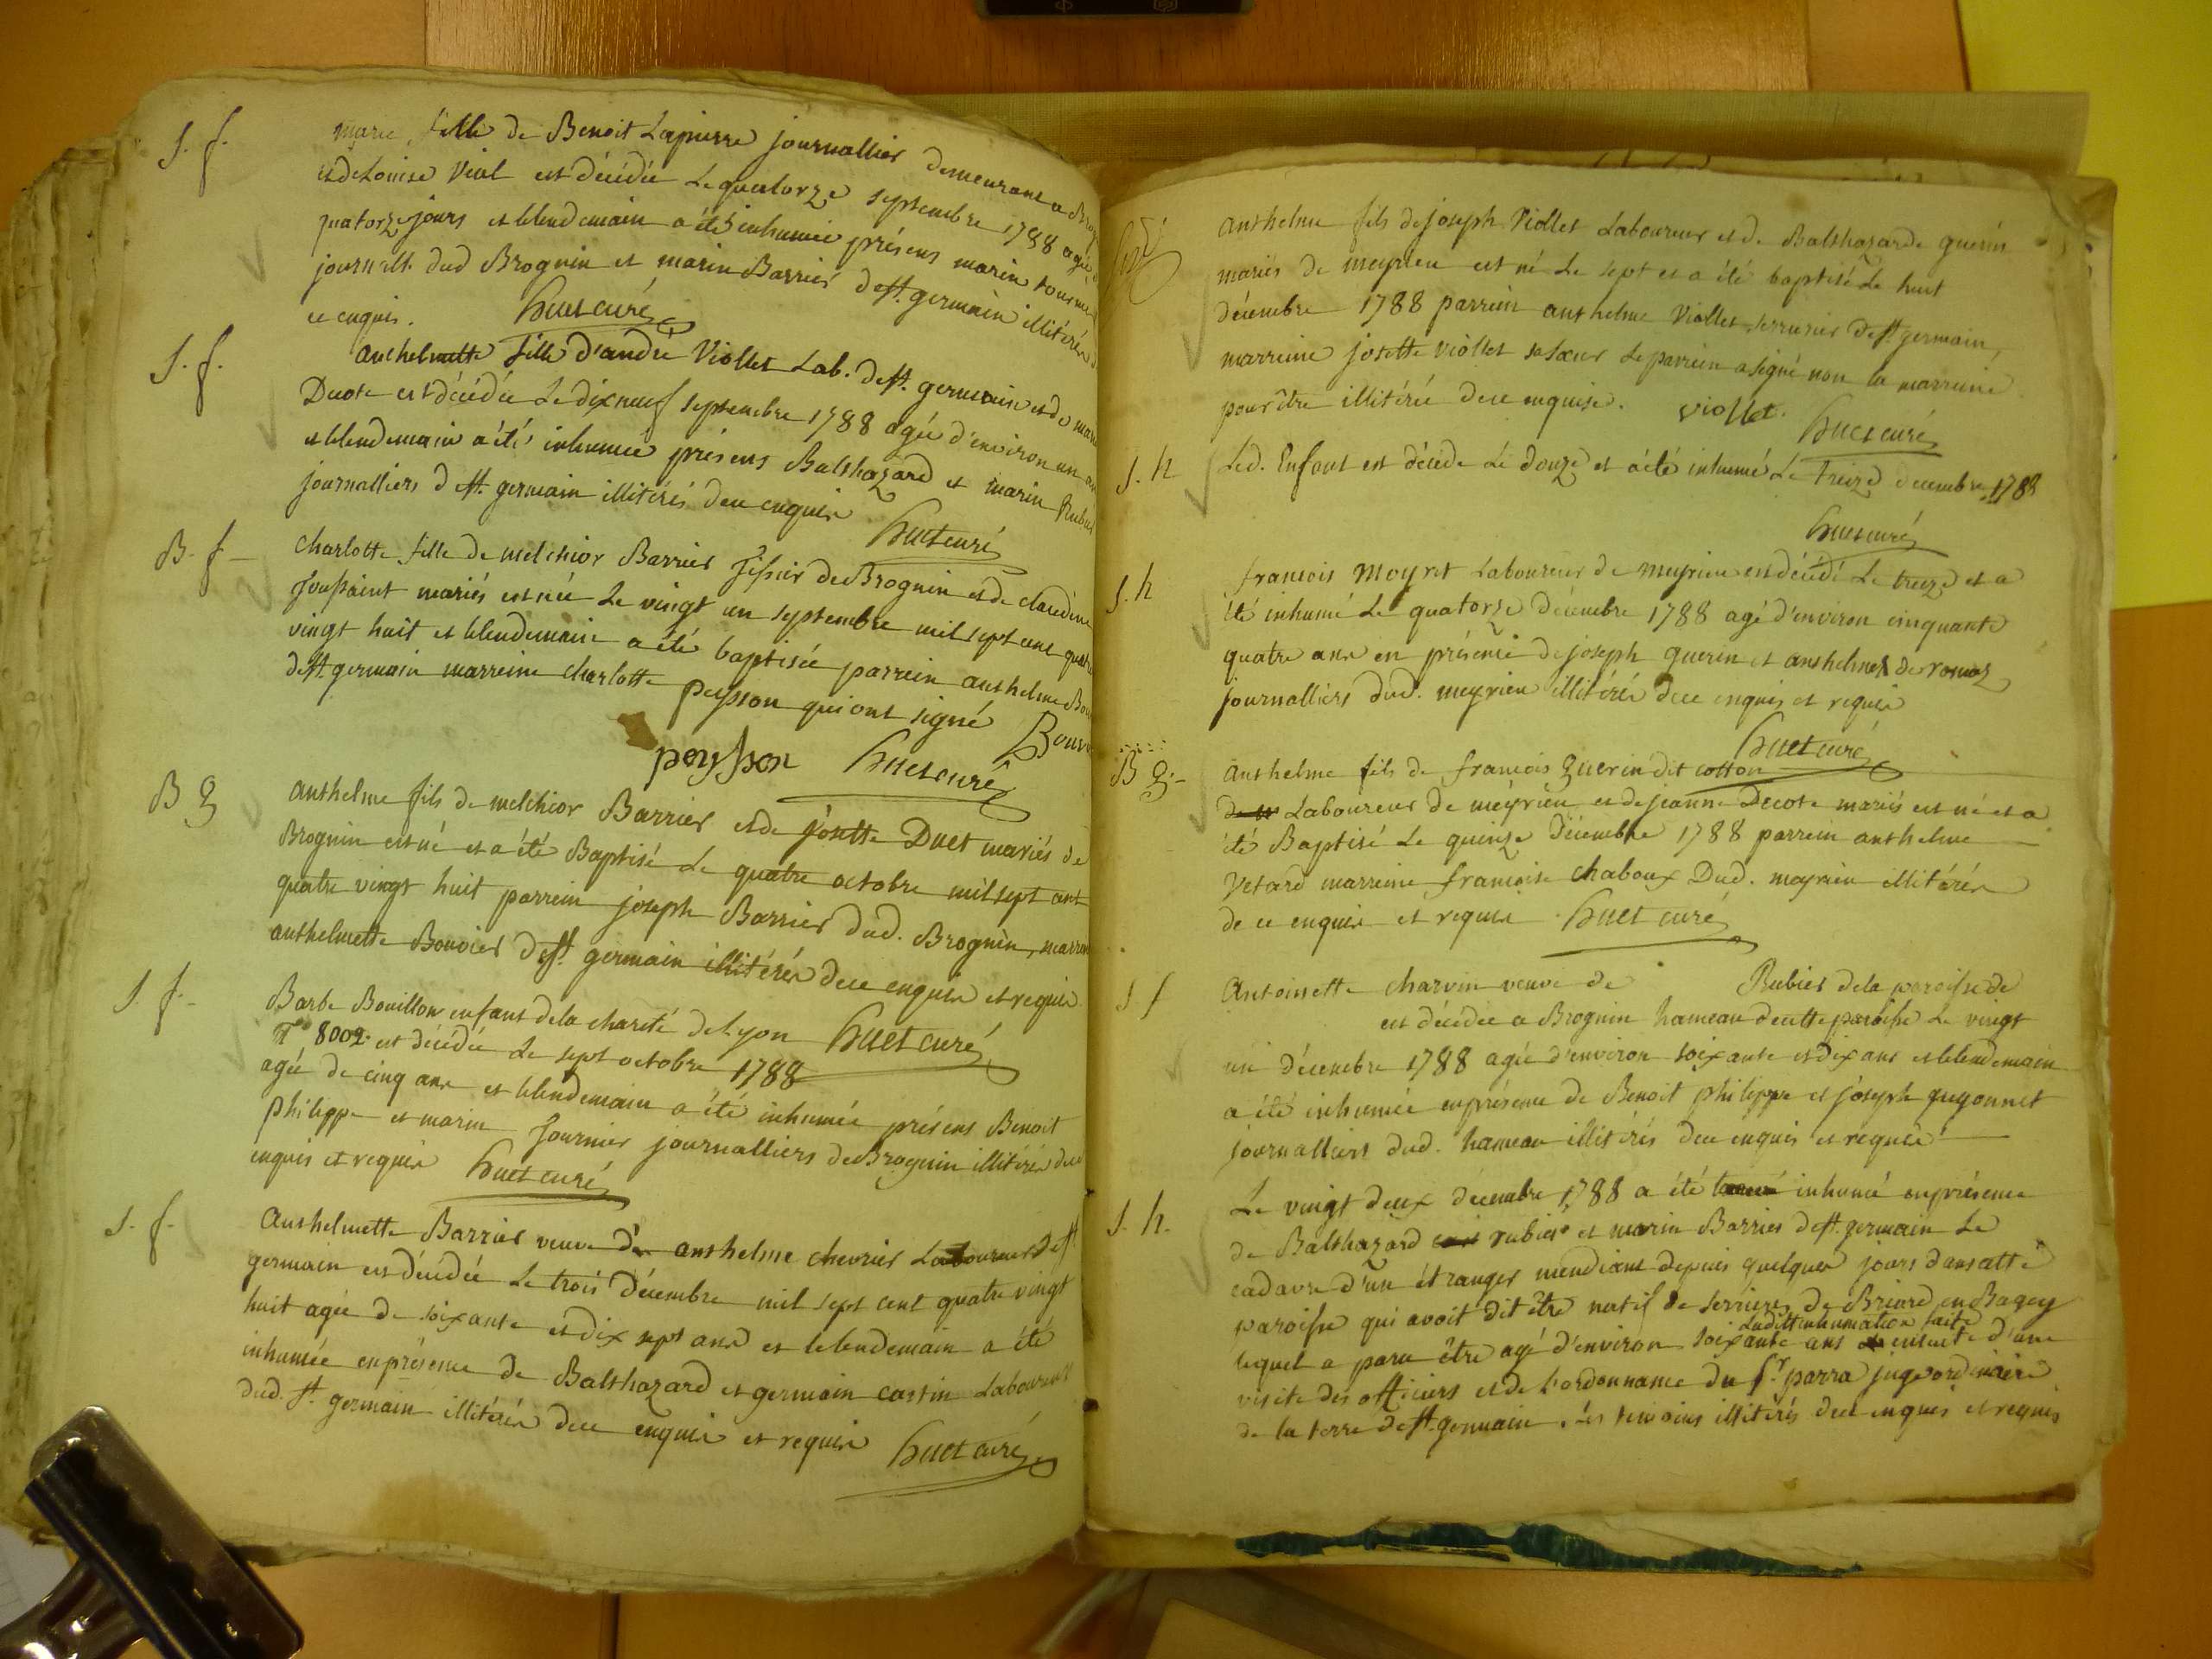 S. f.
marie fille de Benoit Lapierre journallier demeurant a
et de Louise Vial est décédée Le quatorze septembre 1788 agée
quatorze jours et le lendemain a été inhumée présens marin
journall. dud Brognin et marin Barrier de st. germain illitérés
ce enquis. huet curé
S. f.
anthelmette fille d'andré Viollet Lab. de st. germain et de
Decote est décédée Le dix neuf septembre 1788 agée d'environ un an
et le lendemain a été inhumée présens Balthazard et marin Rubier
journalliers de st. germain illitérés de ce enquis huet curé
B. f
charlotte fille de melchior Barrier Tissier de Brognin et de claudine
Toussaint mariés est née Le vingt un septembre mil sept cent quatre
vingt huit et le lendemain a été baptisée parrein anthelme
de st. germain marreine charlotte peysson qui ont signé
peysson huet curé
B g
anthelme fils de melchior Barrier et de josette Duet mariés de
Brognin est né et a été Baptisé Le quatre octobre mil sept cent
quatre vingt huit parrein joseph Barrier dud. Brognin,
anthelmette Bouvier de st. germain illitérés de ce enquis et requis
S f.
huet curé
Barbe Bouillon enfant de la charité de Lyon
n° 8002 est décédée Le sept octobre 1788
agée de cinq ans et le lendemain a été inhumée présens Benoit
philippe et marin fournier journalliers de Brognin illitérés de ce
enquis et requis huet curé
S. f.
Anthelmette Barrier veuve de anthelme chevrier Laboureur de st
germain est décédée Le trois décembre mil sept cent quatre vingt
huit agée de soixante et dix sept ans et le lendemain a été
inhumée en présence de Balthazard et germain castin Laboureurs
dud. st. germain illitérés de ce enquis et requis huet curé
anthelme fils de joseph Viollet Laboureur et de Balthazarde guerin
mariés de meyrieu est né Le sept et a été baptisé Le huit
décembre 1788 parrein anthelme Viollet serrurier de st germain,
marreine josette viollet sa soeur Le parrein a signé non la marreine
pour être illitérée de ce enquise. viollet. huet curé
S. h
Led. Enfant est décédé Le douze et a été inhumé Le treize decembre 1788
huet curé
S. h
francois moyret Laboureur de meyrieu est décédé Le treize et a
été inhumé Le quatorze Décembre 1788 agé d'environ cinquante
quatre ans en présence de joseph guerin et anthelme
journalliers dud. meyrieu illitérés de ce enquis et requis
huet curé
B g.
anthelme fils de francois guerin dit cotton
Laboureur de meyrieu et de jeanne Decote mariés est né et a
été Baptisé Le quinze Décembre 1788 parrein anthelme
Vetard marreine francoise chaboux Dud. meyrieu illitérés
de ce enquis et requis huet curé
S f
Antoinette charvin veuve de Rubier de la paroisse de
est décédée a Brognin hameau de cette paroisse Le vingt
un décembre 1788 agée d'environ soixante et dix ans et le lendemain
a été inhumée en présence de Benoit philippe et joseph guyonnet
journalliers dud. hameau illitérés de ce enquis et requis
S. h.
Le vingt deux decembre 1788 a été inhumé en présence
de Balthazard rubier et marin Barrier de st. germain Le
cadavre d'un étranger mendiant depuis quelques jours dans cette
paroisse qui avoit dit être natif de serrieres de Briord en Bugey
Ladite inhumation faite
lequel a paru être agé d'environ soixante ans ensuite d'une
visite des officiers et de l'ordonnance du sr. parra juge ordinaire
de la terre de st. germain. Les temoins illitérés de ce enquis et requis